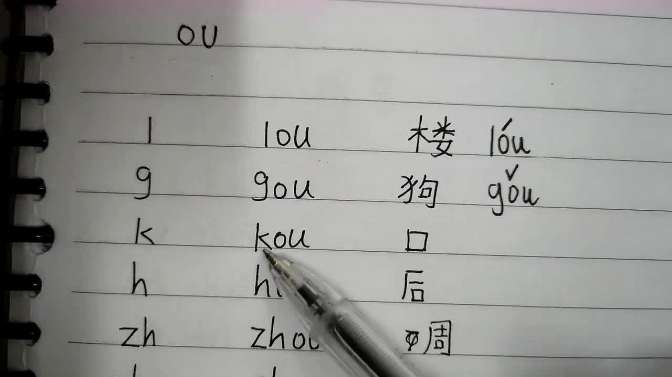 ou
l lou 楼 lóu
g gou 狗 gǒu
k kou 口
h 后
zh zhou 周